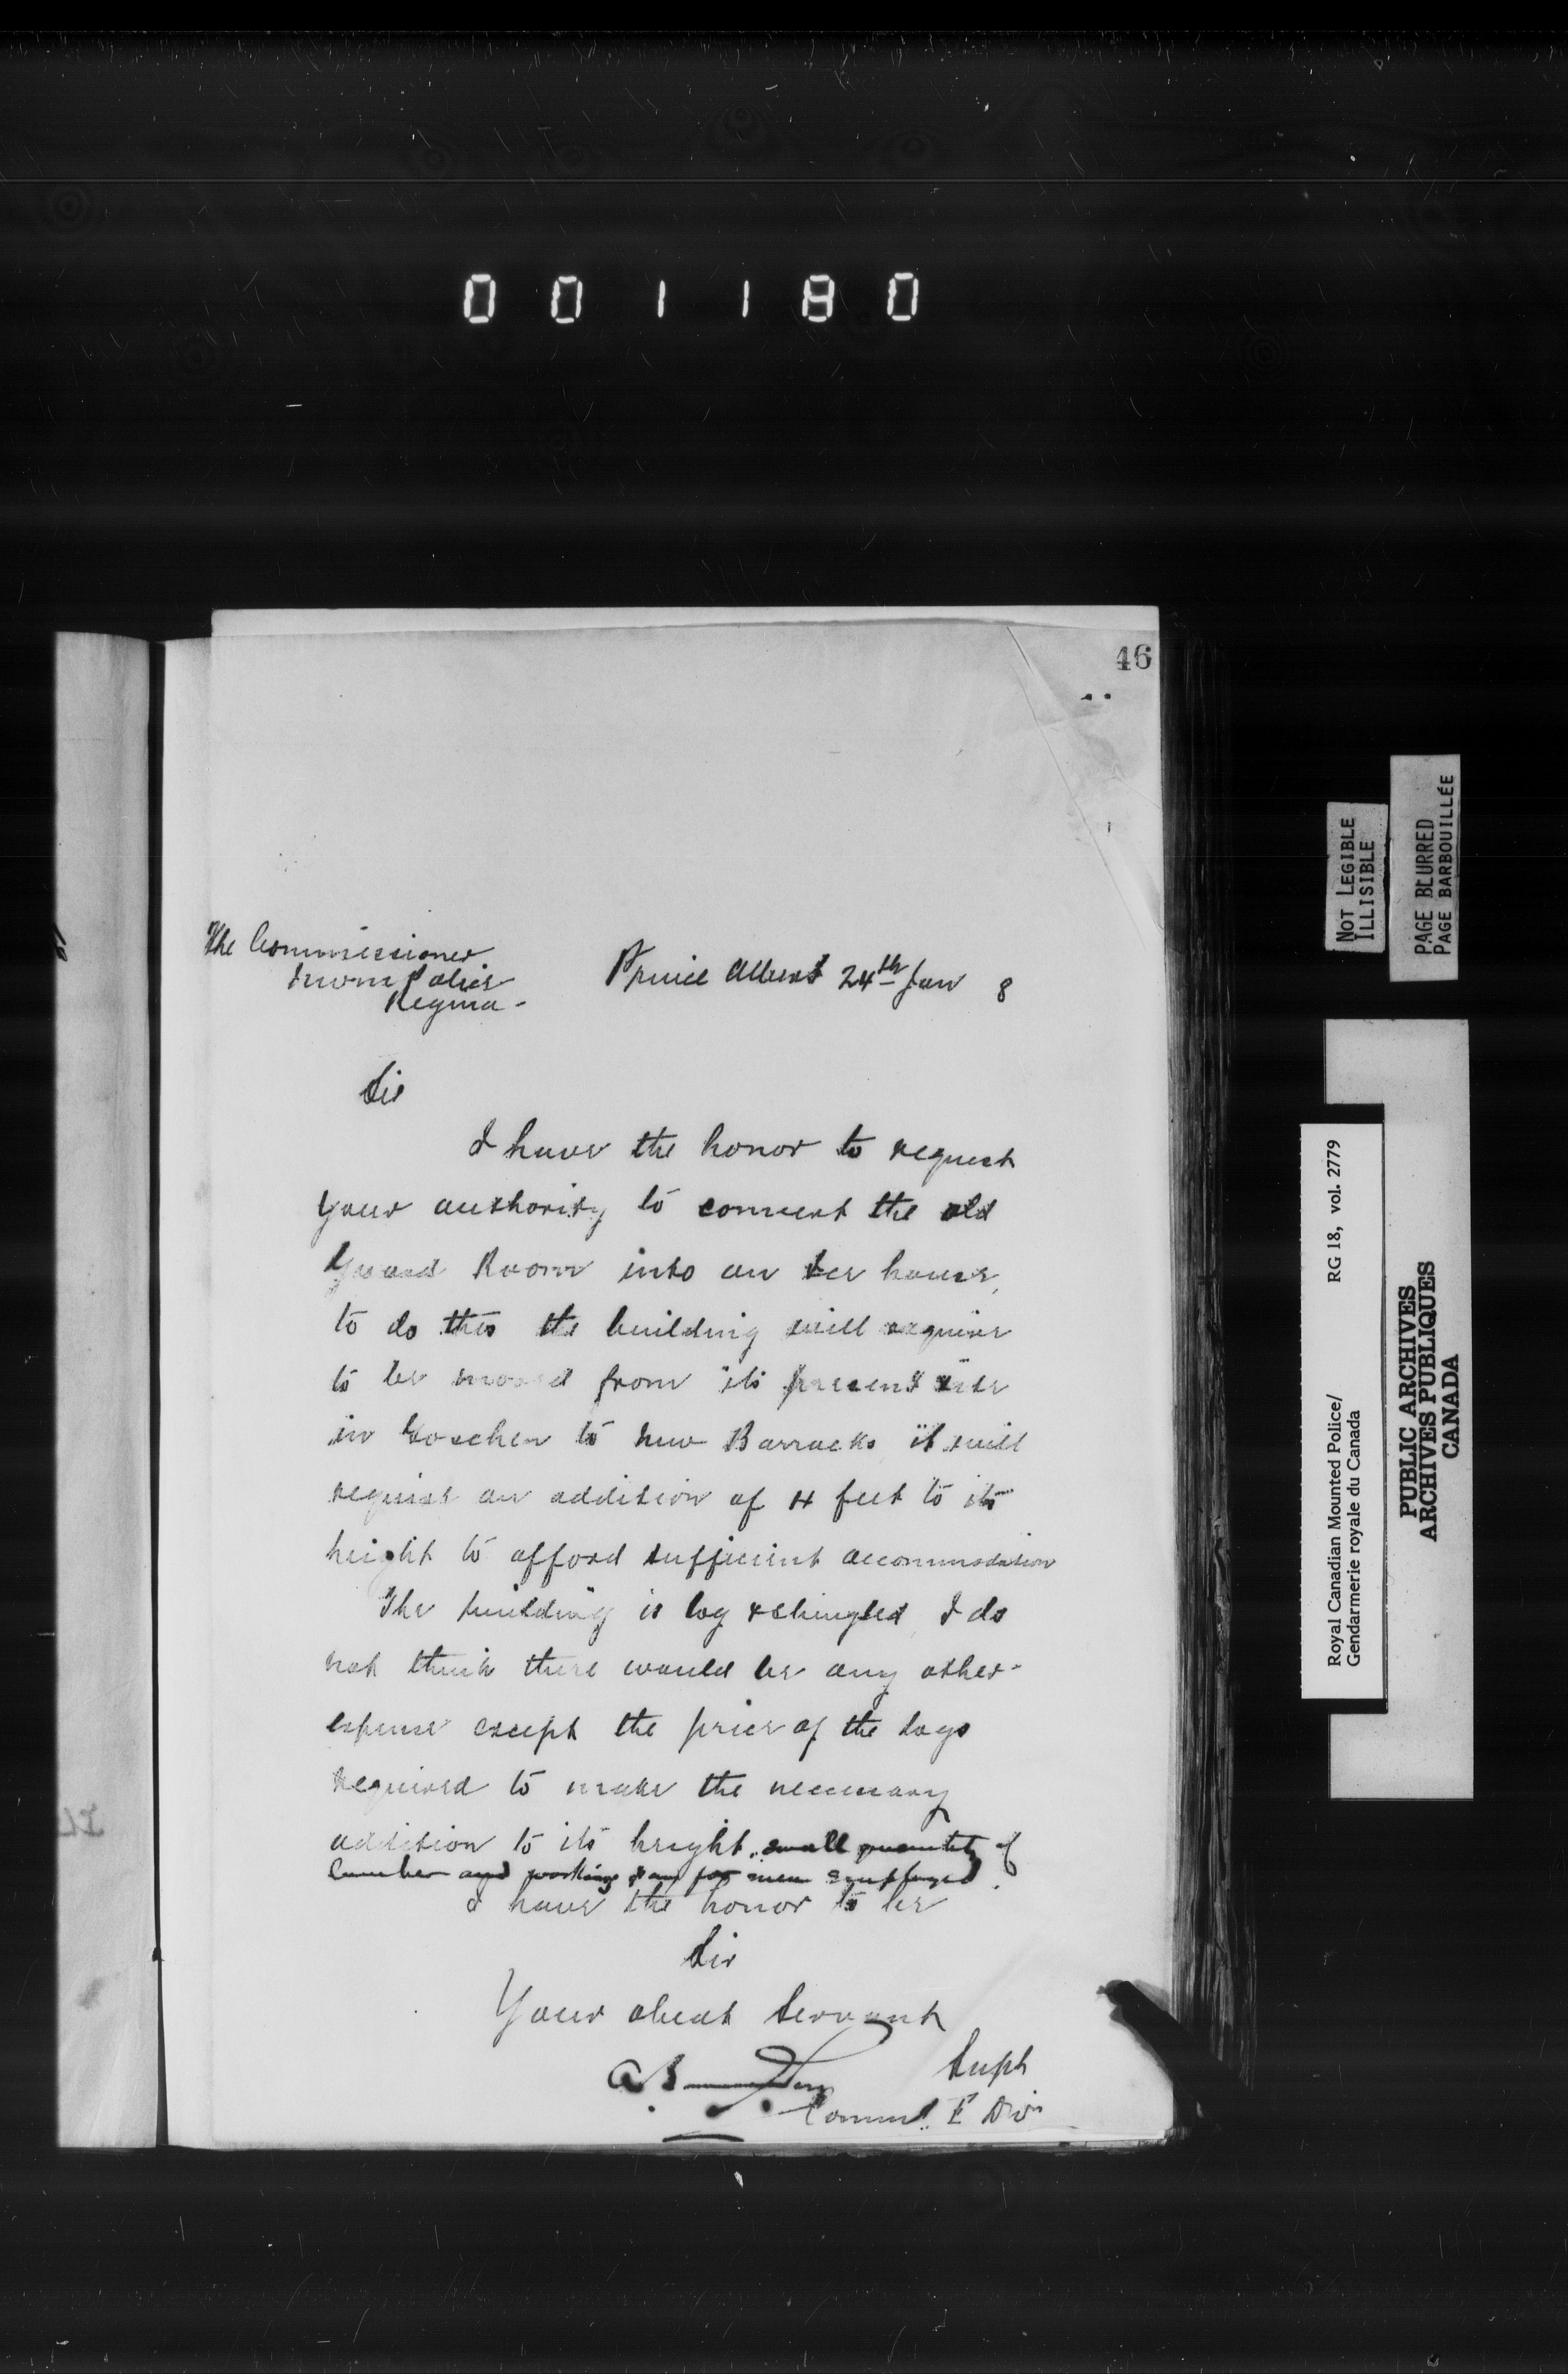 001180
46
The Commissioner
N.W.M. Police
Regina -
Prince Albert 24th Jan 8
Sir
I have the honor to request
your authority to convert the old
Guard Room into an Ice house,
to do this the building will require
to be moved from its present site
in Goschen to new Barracks, it will
require an addition of 4 feet to its
height to afford sufficient accommodation
The building is log & shingled, I do
not think there would be any other
expense except the price of the logs
required to make the necessary
addition to its height, small quantity of
lumber and working pay for men employed.
I have the honor to be
Sir
Your obedt Servant
Supt
Commd. E Divn
NOT LEGIBLE
ILLISIBLE
PAGE BLURRED
PAGE BARBOUILLÉE
Royal Canadian Mounted Police/ RG 18, vol. 2779
Gendarmerie royale du Canada
PUBLIC ARCHIVES
ARCHIVES PUBLIQUES
CANADA